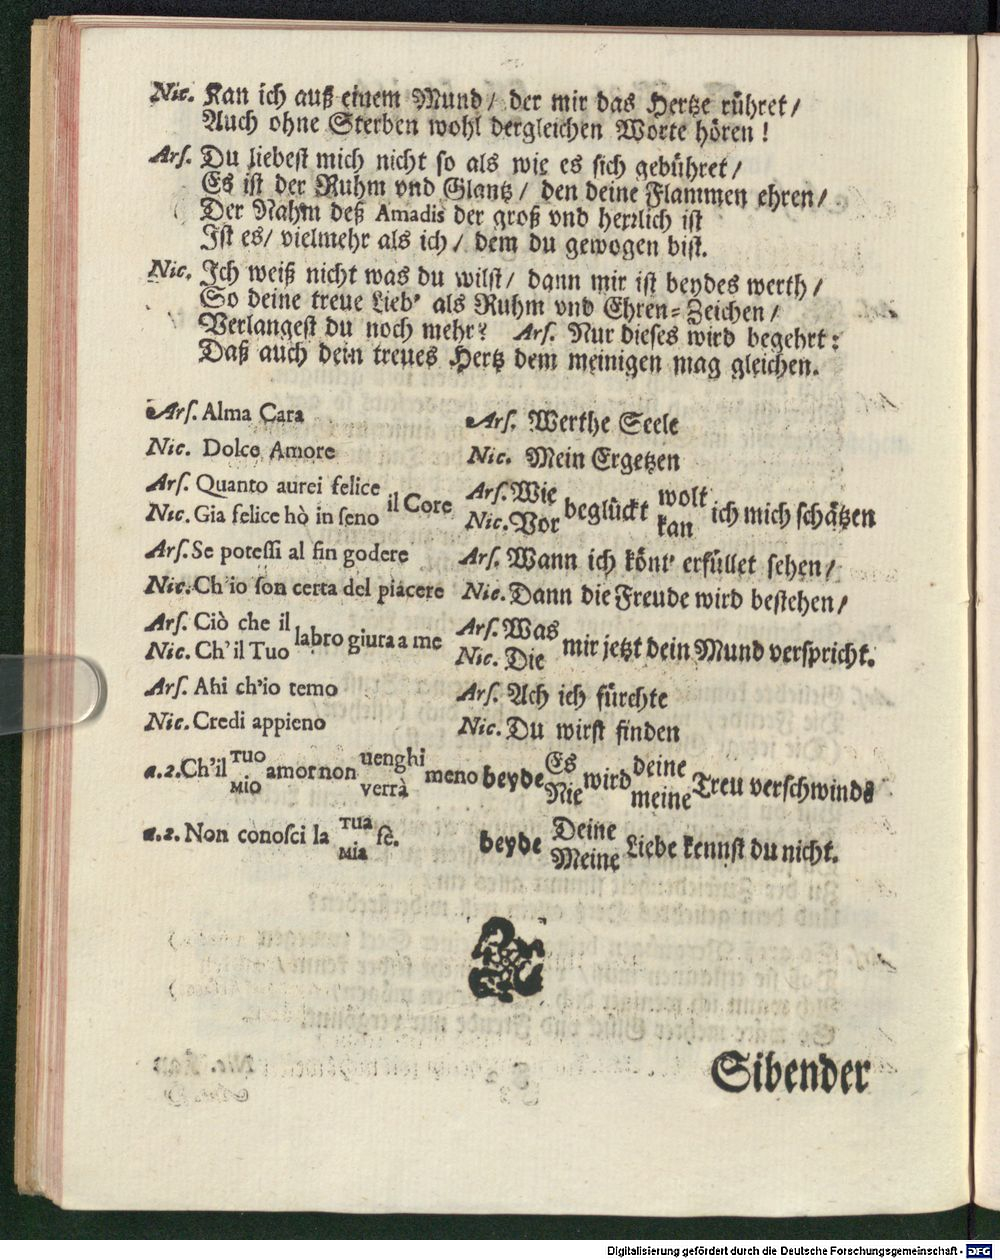 Nic. Kan ich auß einem Mund / der mir das Hertze rühret /
Auch ohne Sterben wohl dergleichen Worte hören !
Arſ. Du liebeſt mich nicht ſo als wie es ſich gebühret /
Es iſt der Ruhm vnd Glantz / den deine Flammen ehren /
Der Nahm deß Amadis der groß vnd herrlich iſt
Iſt es / vielmehr als ich / dem du gewogen biſt.
Nic. Ich weiß nicht was du wilſt / dann mir iſt beydes werth /
So deine treue Lieb' als Ruhm vnd Ehren-Zeichen /
Verlangeſt du noch mehr? Arſ. Nur dieſes wird begehrt :
Daß auch dein treues Hertz dem meinigen mag gleichen.
Arſ. Alma Cara
Nic. Dolce Amore
Arſ. Quanto aurei felice
Nic. Gia felice hò in ſeno
il Core
Arſ. Se poteſſi al fin godere
Nic. Ch'io ſon certa del piacere
Arſ. Ciò che il
Nic. Ch' il Tuo
labro giura a me
Arſ. Ahi ch'io temo
Nic. Credi appieno
a.2. Ch'il
TUO
MIO
amor non
uenghi
verrà
meno
a.2. Non conoſci la
TUA
MIA
fè.
Arſ. Werthe Seele
Nic. Mein Ergetzen
Arſ. Wie
Nic. Vor
beglückt
wolt
kan
ich mich ſchätzen
Arſ. Wann ich könt' erfüllet ſehen /
Nic. Dann die Freude wird beſtehen /
Arſ. Was
Nic. Die
mir jetzt dein Mund verſpricht.
Arſ. Ach ich fürchte
Nic. Du wirſt finden
beyde
Es
Nie
wird
deine
meine
Treu verſchwinde
beyde
Deine
Meine
Liebe kennſt du nicht.
Sibender
Digitalisierung gefördert durch die Deutsche Forschungsgemeinschaft - DFG